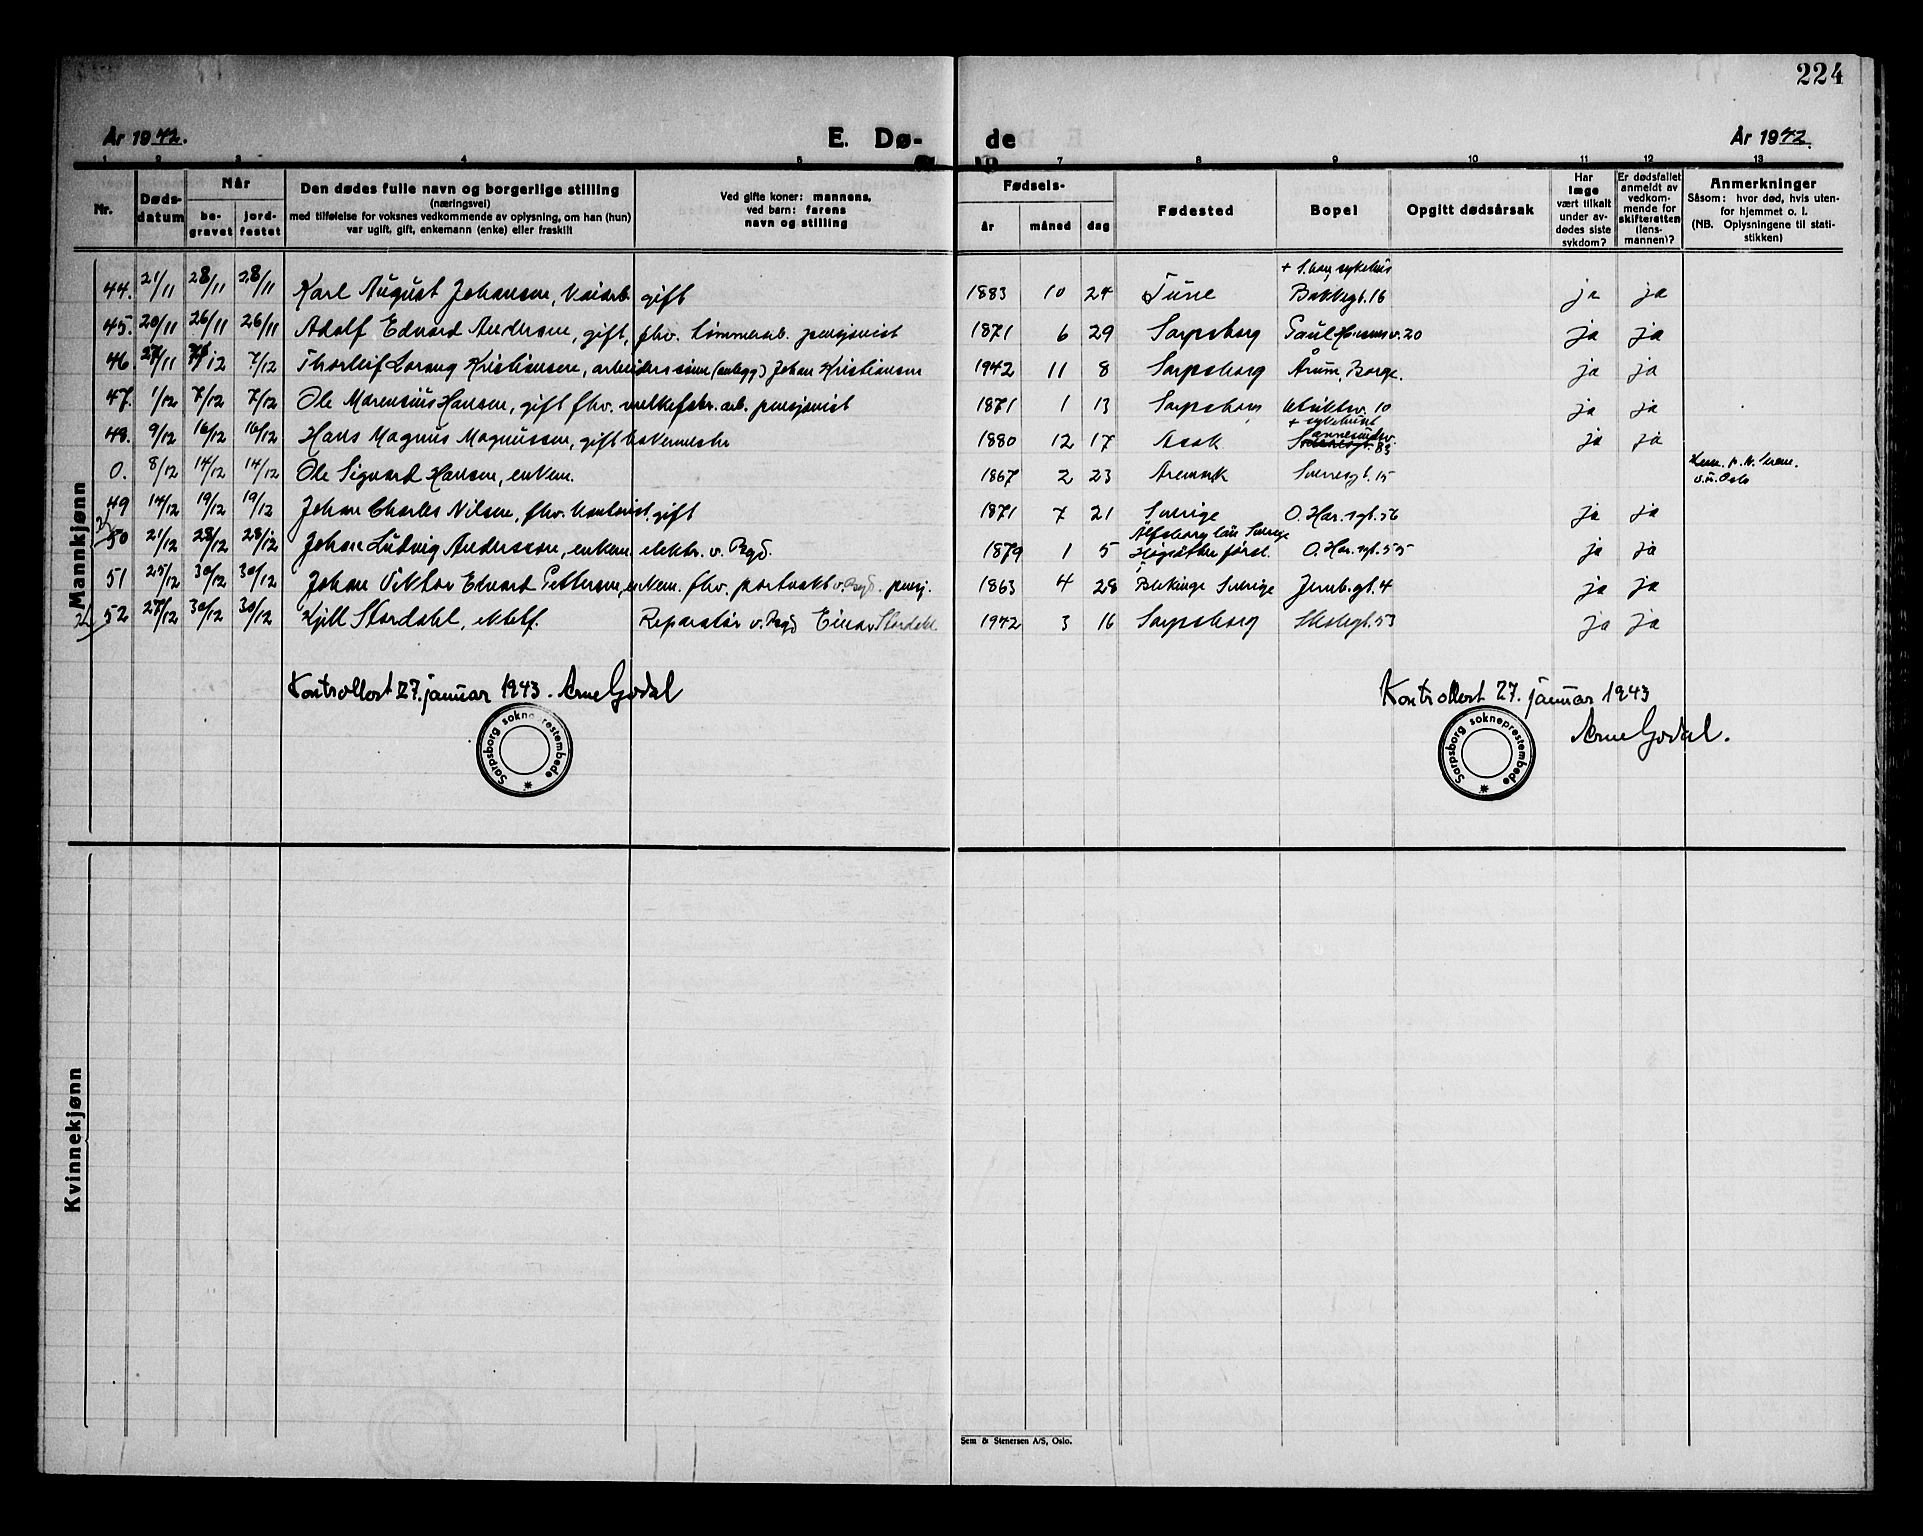 224
År 1942.
E. Dø- de
År 1942.
1 2 3 4 5 7 8 9 10 11 12 13
Nr.
Døds-
datum
Når
be-
gravet
jord-
festet
Den dødes fulle navn og borgerlige stilling
(næringsvei)
med tilføielse for voksnes vedkommende av oplysning, om han (hun)
var ugift, gift, enkemann (enke) eller fraskilt
Ved gifte koner: mannens,
ved barn: farens
navn og stilling
Fødsels-
år måned dag
Fødested
Bopel
Opgitt dødsårsak
Har
læge
vært tilkalt
under av-
dødes siste
sykdom?
Er dødsfallet
anmeldt av
vedkom-
mende for
skifteretten
(lens-
mannen)?
Anmerkninger
Såsom: hvor død, hvis uten-
for hjemmet o. l.
(NB. Oplysningene til stati-
stikken)
Mannkjønn
44. 21/11 28/11 28/11 Karl August Johansen, gift 1883 10 24 Tune + S.borg sykehus Bakkegt. 16 ja ja
45. 20/11 26/11 26/11 Adolf Edvard Andersen, gift, fhv. tømmerarb. pensjonist 1871 6 29 Sarpsborg 20 ja ja
46. 27/11 7/12 7/12 Thorleif Lorang Kristiansen, arbeiderssønn (anlegg) Johan Kristiansen 1942 11 8 Sarpsborg Årum, Borge. ja ja
47. 1/12 7/12 7/12 Ole Marensius Hansen, gift fhv. arb. pensjonist 1871 1 13 Sarpsborg 10 ja ja
48. 9/12 16/12 16/12 Hans Magnus Magnussen, gift bakermester 1880 12 17 Asak + sykehuset 83 ja ja
0. 8/12 14/12 14/12 Ole Sigvard Hansen, enkem. 1867 2 23 Aremark Sverresgt. 15 Oslo
49 14/12 19/12 19/12 Johan Charles Nilsen, fhv. gift 1871 7 21 Sverige O. Har. sgt. 56 ja ja
50 21/12 28/12 28/12 Johan Ludvig Andersson, enkem. elektr. v. Brgd. 1879 1 5 Älfsborg län Sverige O. Har. sgt. 55 ja ja
51 25/12 30/12 30/12 Johan Viktor Edvard Pettersen, enkem. fhv. portvakt v. Brgd. pensj. 1863 4 28 Blekinge Sverige Jernb.gt. 4 ja ja
52 27/12 30/12 30/12 Kjell Stordahl, Reparatør v. Brgd Einar Stordahl 1942 3 16 Sarpsborg Skolegt. 53 ja ja
Kontrollert 27. januar 1943. Arne Godal
Sarpsborg sokneprestembede
Kontrollert 27. januar 1943
Arne Godal.
Sarpsborg sokneprestembede
Kvinnekjønn
Sem & Stenersen A/S, Oslo.